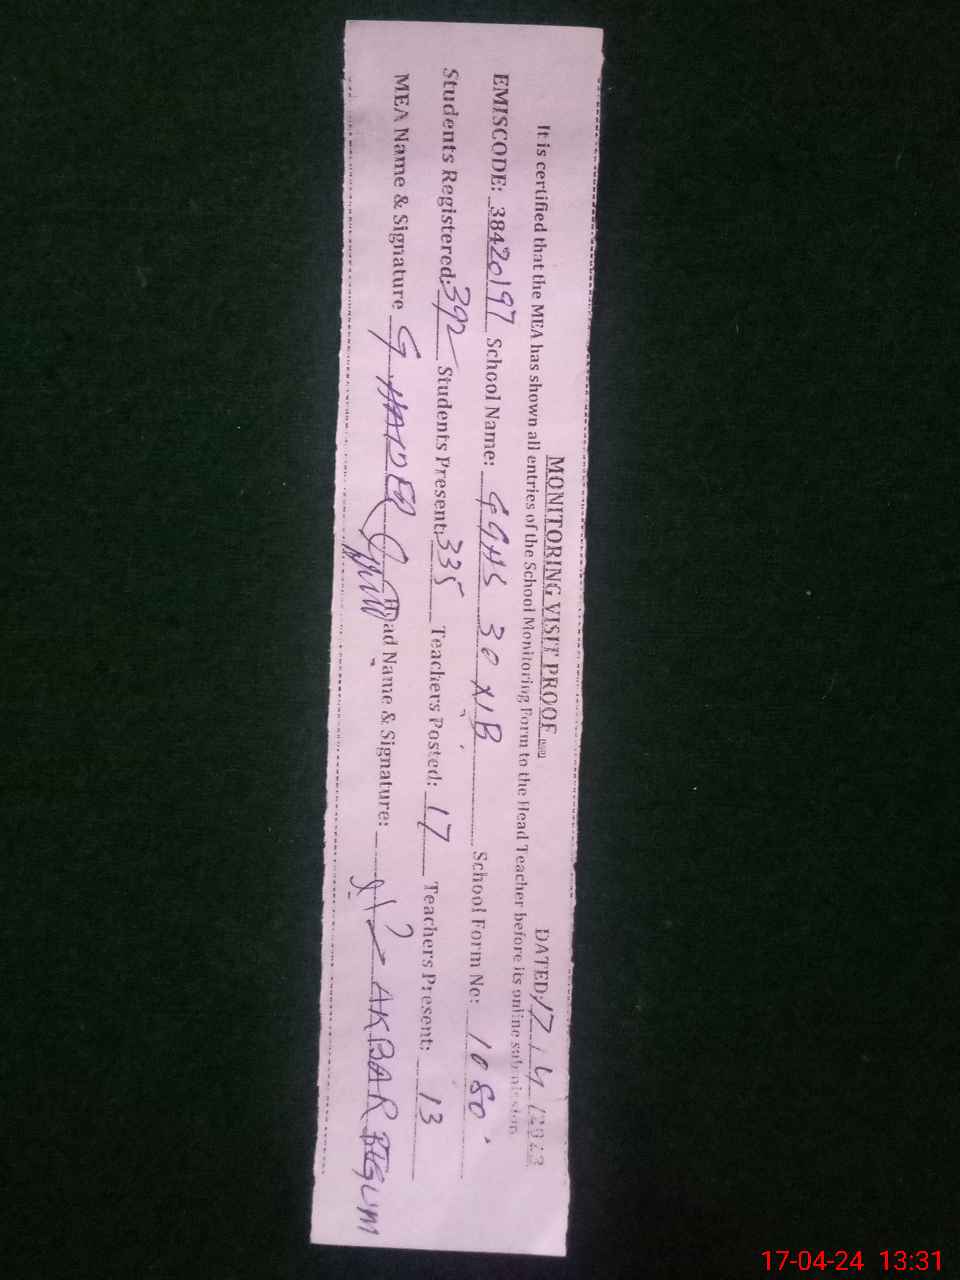 MONITORING VISIT PROOF DATED: 17/4/2023
It is certified that the MEA has shown all entries of the School Monitoring Form to the Head Teacher before its online submission
EMISCODE: 38420197 School Name: GGHS 30 X/B School Form No: 1080
Students Registered: 392 Students Present: 335 Teachers Posted: 17 Teachers Present: 13
MEA Name & Signature G. HAIDER Head Name & Signature: AKBAR BEGUM
17-04-24 13:31